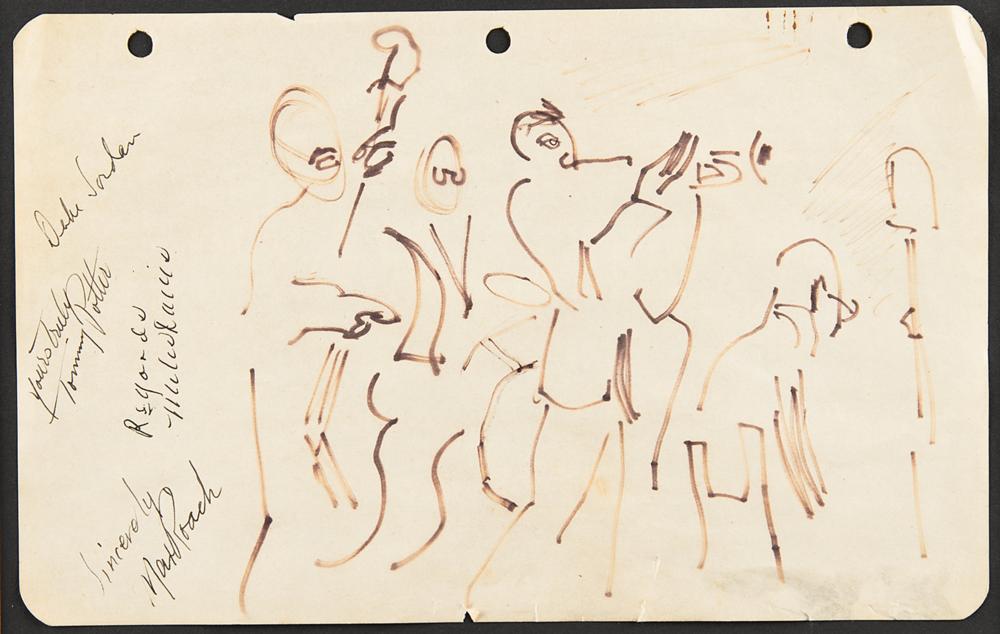 Duke Jordan
Yours Truly
Tommy Potter
Regards
Sincerely
Max Roach